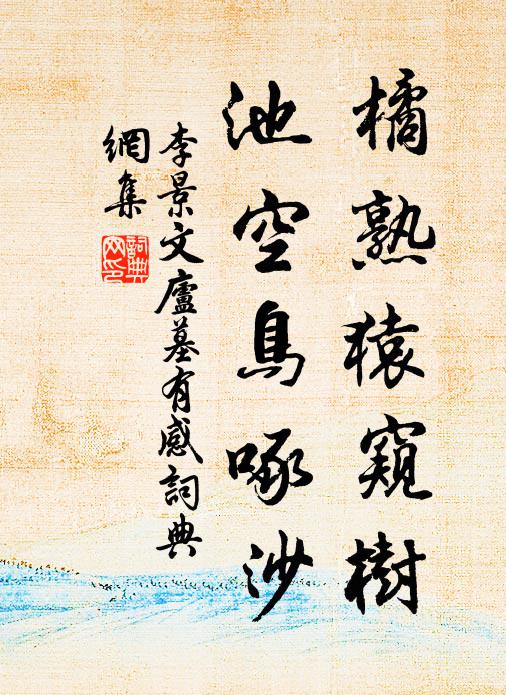 橘熟猿窺樹
池空鳥啄沙
李景文廬墓有感詞典
網集
詞典
网印